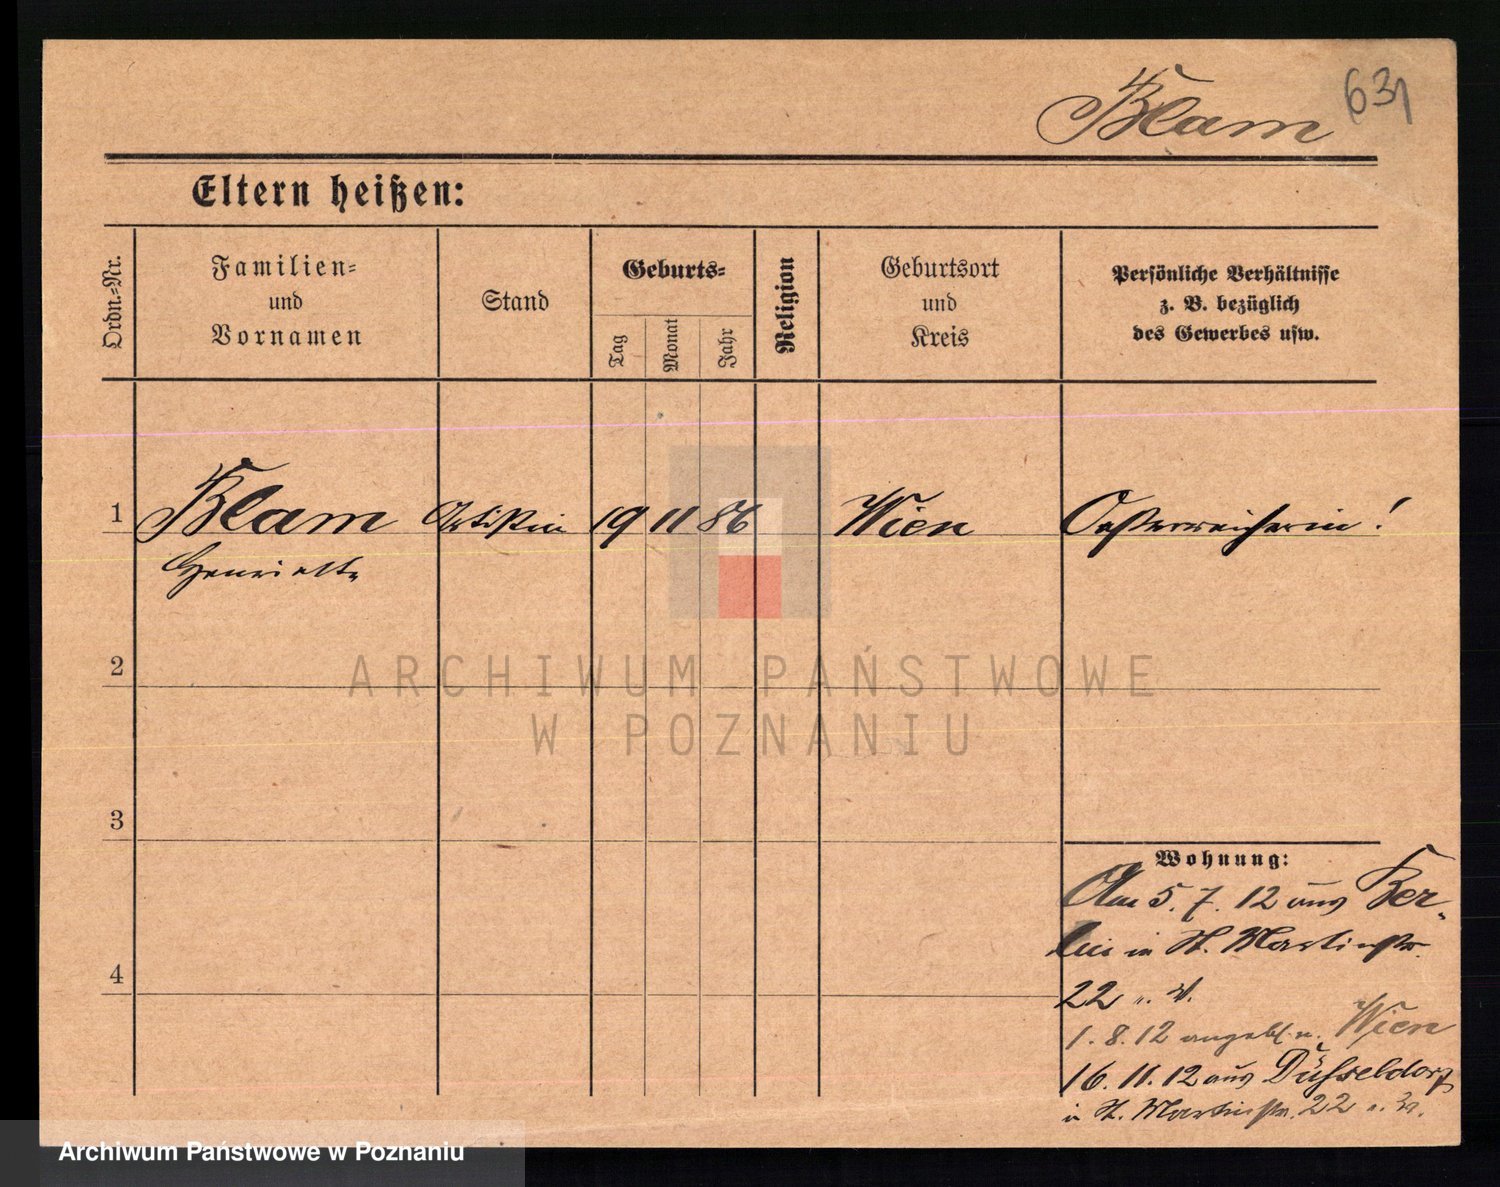 Blam 631
Eltern heißen:
Ordn.-Nr.
Familien-
und
Vornamen
Stand
Geburts-
Tag
Monat
Jahr
Religion
Geburtsort
und
Kreis
Persönliche Verhältnisse
z. B. bezüglich
des Gewerbes usw.
1 Blam Artistin 19 11 86 Wien Oesterreicherin!
Henriette
2
ARCHIWUM PAŃSTWOWE
W POZNANIU
3
Wohnung:
Am 5. 7. 12 aus Ber-
lin in St. Martinstr.
4
22 
1. 8. 12 angebl. n. Wien
16. 11. 12 aus Düsseldorf
in St. Martinstr. 22
Archiwum Państwowe w Poznaniu